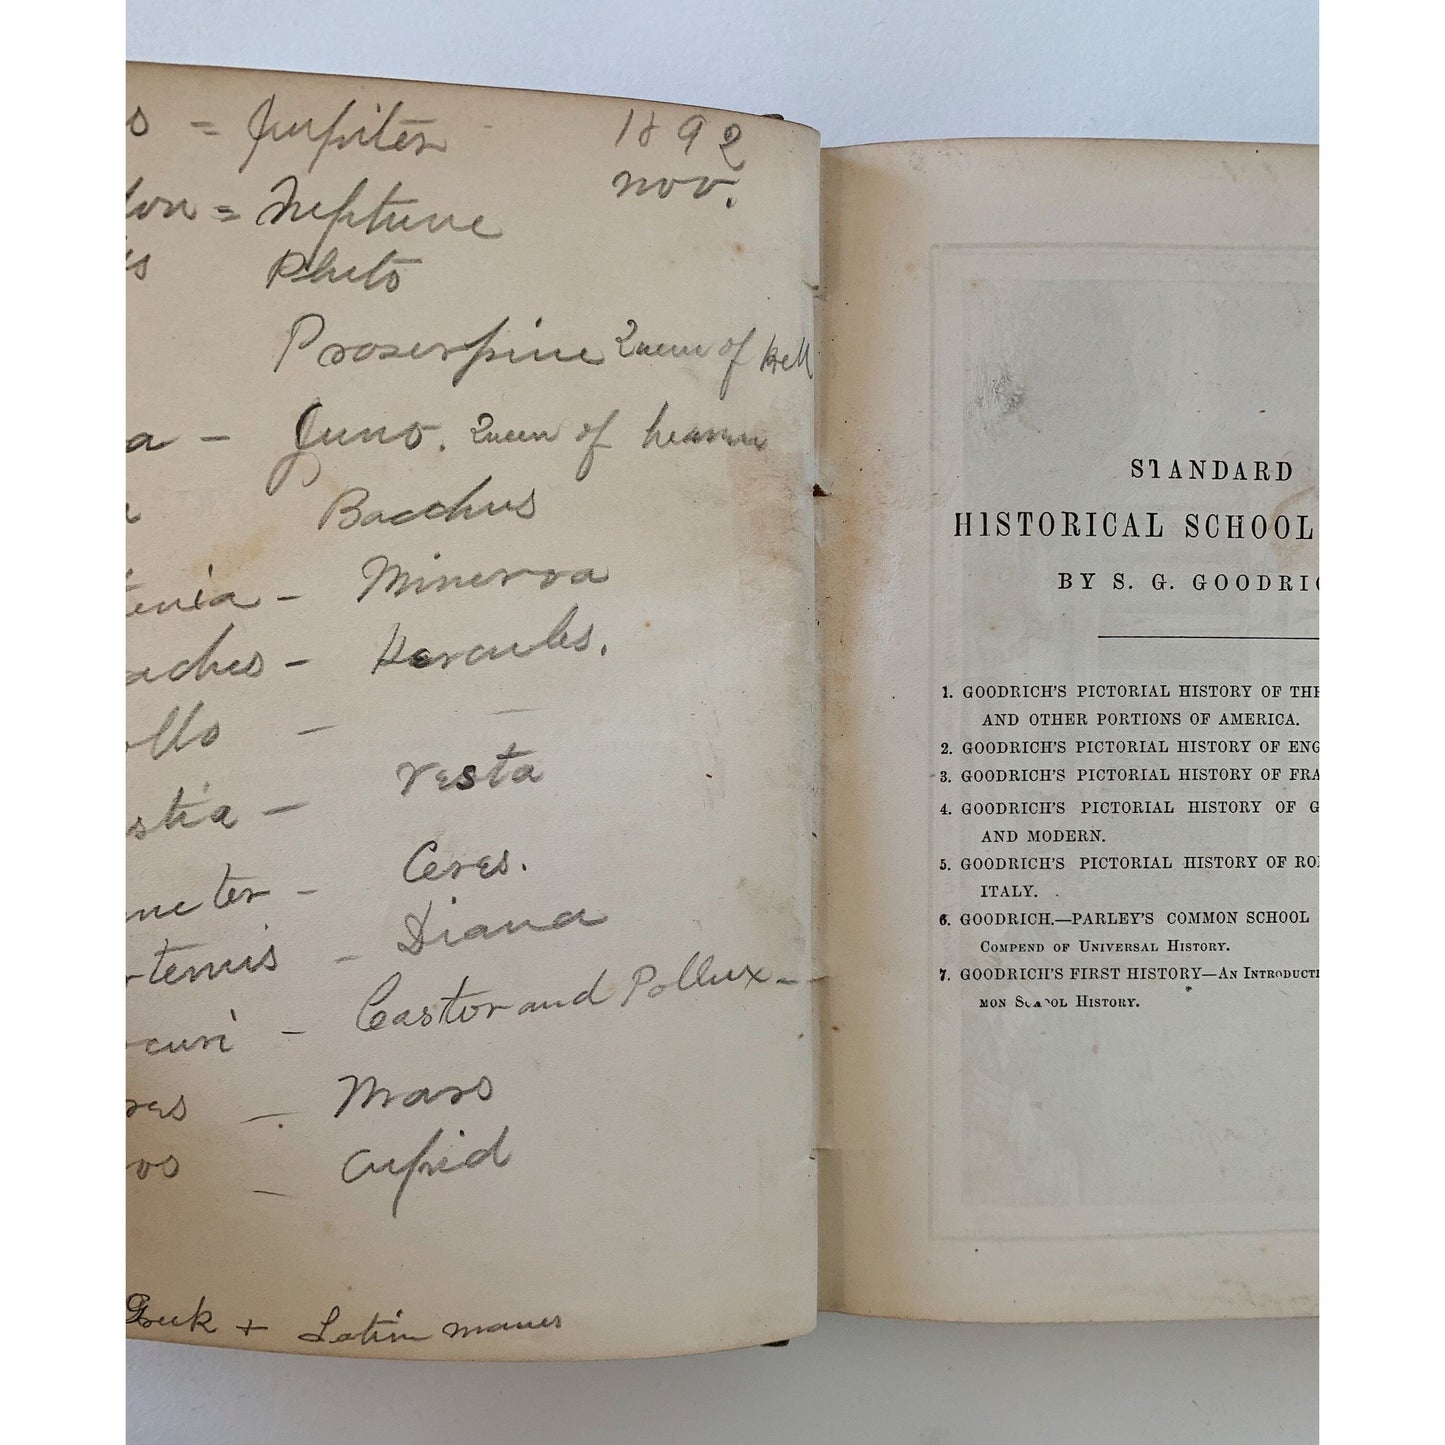 s = Jupiter
1892
nov.
don = Neptune
Pluto
Proserpine Queen of hell
a - Juno. Queen of heaven
Bacchus
enia - Minerva
Hercules.
ollo -
stia - Vesta
meter - Ceres.
rtemis - Diana
curi - Castor and Pollux -
res - Mars
ros - Cupid
Greek + Latin names
STANDARD
HISTORICAL SCHOOL
BY S. G. GOODRIC
1. GOODRICH'S PICTORIAL HISTORY OF THE
AND OTHER PORTIONS OF AMERICA.
2. GOODRICH'S PICTORIAL HISTORY OF ENG
3. GOODRICH'S PICTORIAL HISTORY OF FRA
4. GOODRICH'S PICTORIAL HISTORY OF G
AND MODERN.
5. GOODRICH'S PICTORIAL HISTORY OF RO
ITALY.
6. GOODRICH.—PARLEY'S COMMON SCHOOL
COMPEND OF UNIVERSAL HISTORY.
7. GOODRICH'S FIRST HISTORY—AN INTRODUCTI
MON SCHOOL HISTORY.